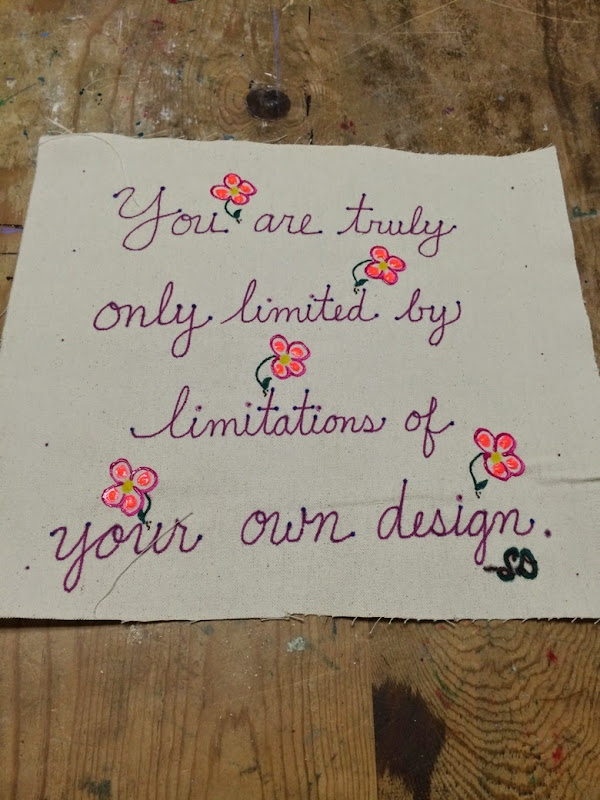 You are truly
only limited by
limitations of
your own design.
-SO